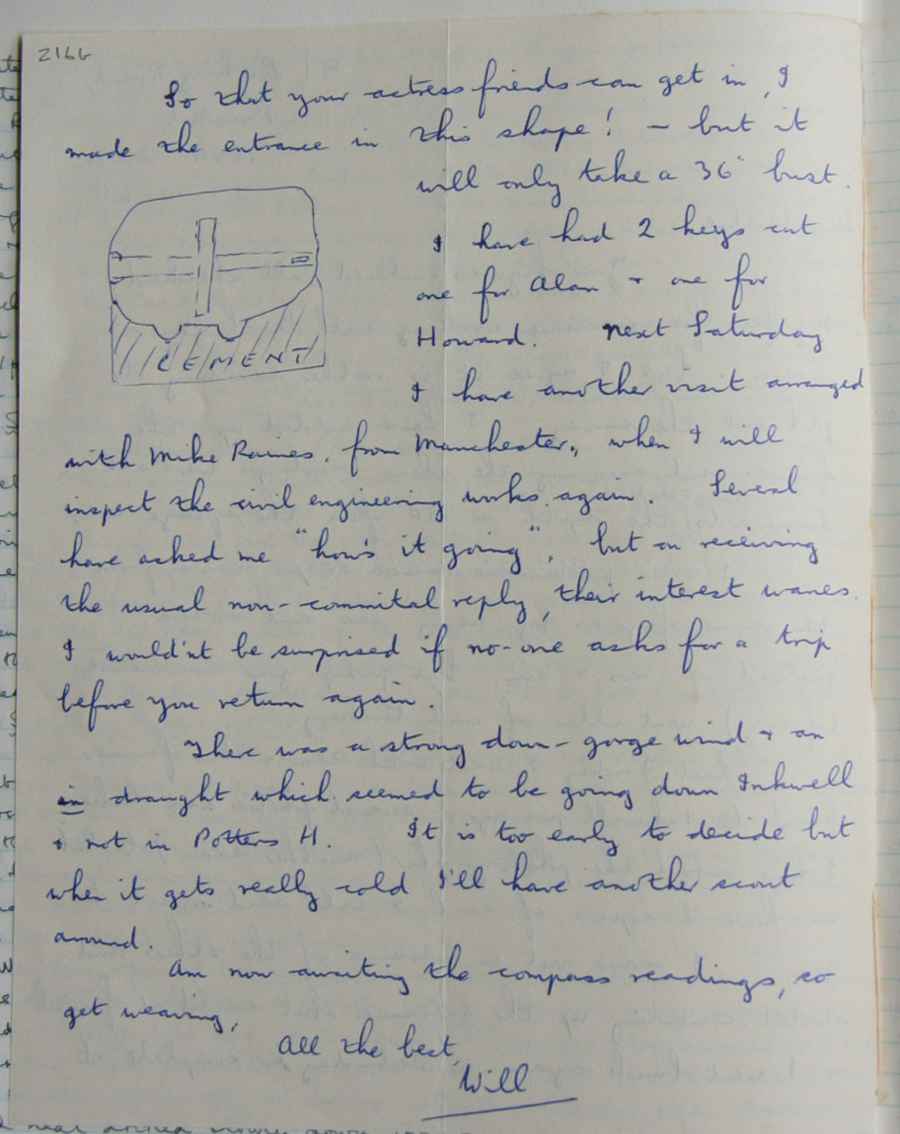 216b
So that your actress friends can get in, I
made the entrance in this shape! — but it
will only take a 36" bust.
I have had 2 keys cut
one for Alan + one for
Howard. Next Saturday
I have another visit arranged
CEMENT
with Mike Raines. from Manchester, when I will
inspect the civil engineering works again. Several
have asked me "how's it going", but on receiving
the usual non-commital reply, their interest wanes.
I would'nt be surprised if no-one asks for a trip
before you return again.
There was a strong down-gorge wind + an
in draught which seemed to be going down Inkwell
+ not in Potters H. It is too early to decide but
when it gets really cold I'll have another scout
around.
Am now awaiting the compass readings, so
get weaving,
All the best,
Will